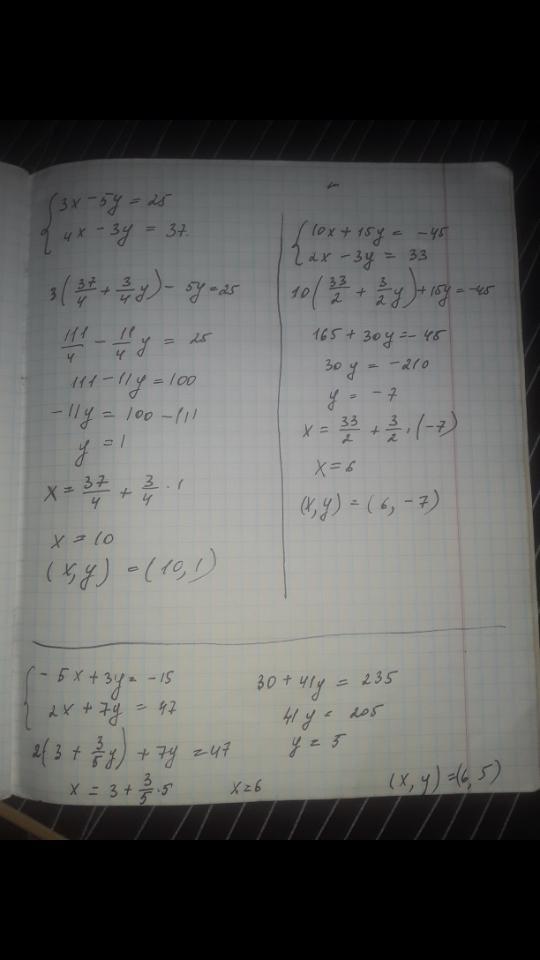 3x - 5y = 25
4x - 3y = 37.
3(37/4 + 3/4 y) - 5y = 25
111/4 - 11/4 y = 25
111 - 11y = 100
-11y = 100 - 111
y = 1
x = 37/4 + 3/4 · 1
x = 10
(x, y) = (10, 1)
10x + 15y = -45
2x - 3y = 33
10(33/2 + 3/2 y) + 15y = -45
165 + 30y = -45
30y = -210
y = -7
x = 33/2 + 3/2 · (-7)
x = 6
(x, y) = (6, -7)
-5x + 3y = -15
2x + 7y = 47
2(3 + 3/5 y) + 7y = 47
30 + 41y = 235
41y = 205
y = 5
x = 3 + 3/5 · 5
x = 6
(x, y) = (6, 5)